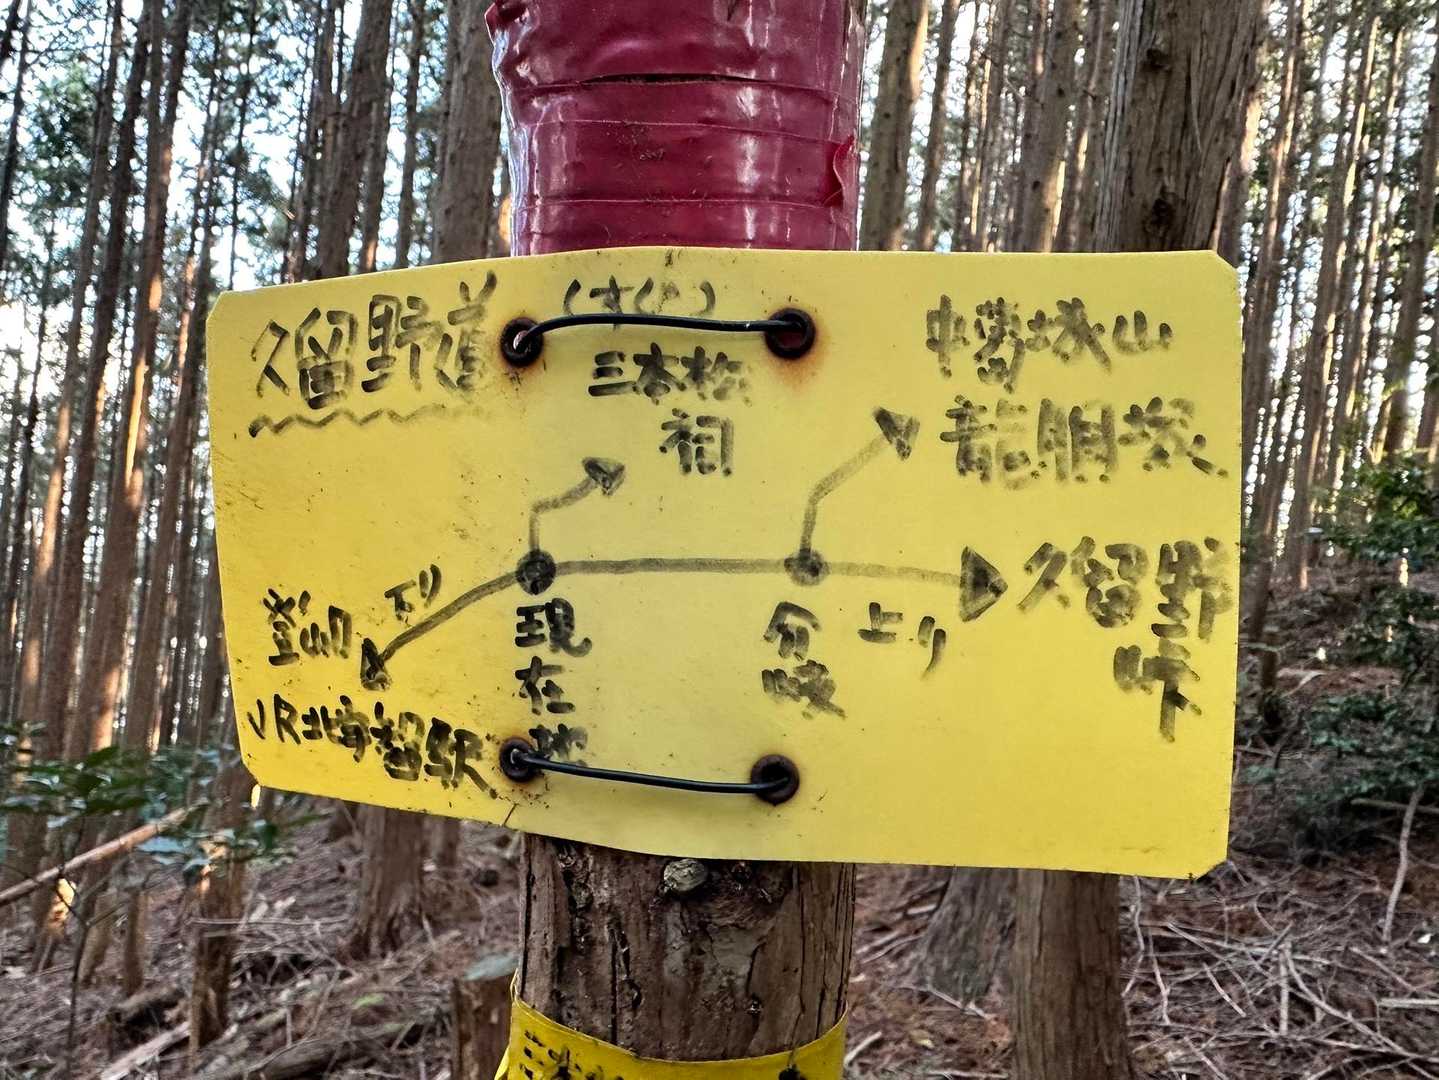 久留野道
三本松
祠
中葛城山
龍胆塚
久留野
峠
上り
分岐
現在地
下り
登山口
JR北宇智駅
三本